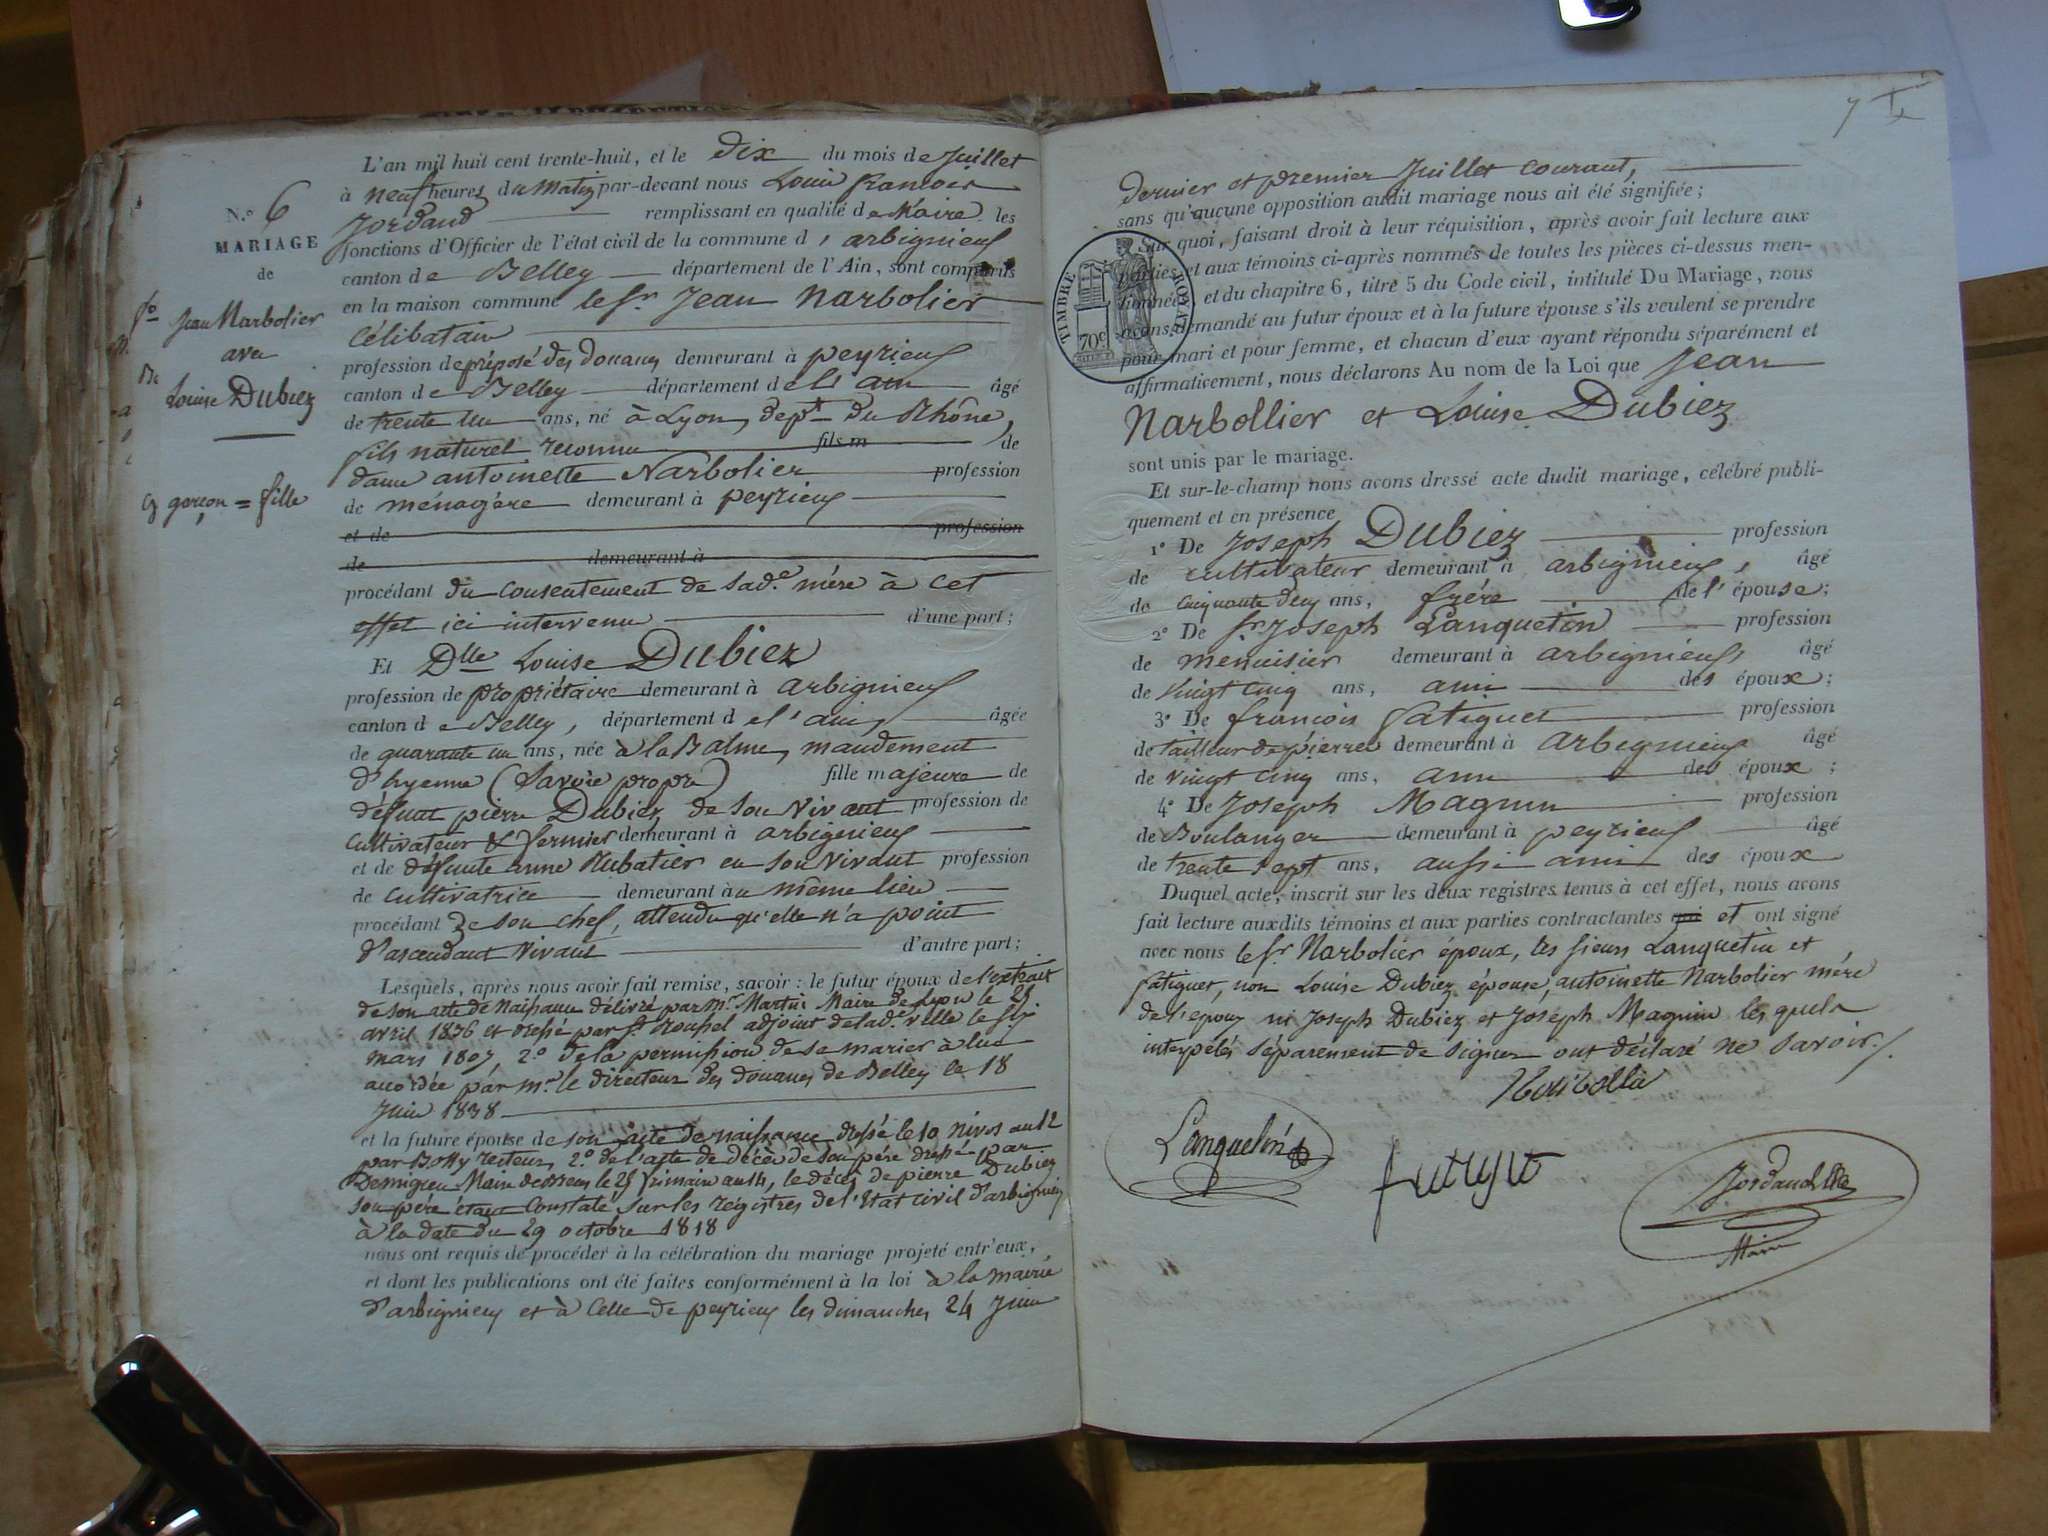 N.º 6
MARIAGE
de
Jean Narbolier
avec
Louise Dubiez
garçon = fille
L'an mil huit cent trente-huit, et le dix du mois de Juillet
à neuf heures du Matin par-devant nous Louis françois
Jordand remplissant en qualité de Maire les
fonctions d'Officier de l'état civil de la commune d'arbignieu
canton de Belley département de l'Ain, sont comparus
en la maison commune le Sr. Jean Narbolier
Célibatair
profession de préposé des douanes demeurant à peyrieu
canton de Belley département de l'ain âgé
de trente un ans, né à Lyon, dept. du Rhône,
fils naturel reconnu fils m de
dame antoinette Narbolier profession
de ménagère demeurant à peyrieu
et de profession
de demeurant à
procédant du consentement de sade. mère à cet
effet ici intervenue d'une part;
Et Dlle Louise Dubiez
profession de propriétaire demeurant à arbignieu
canton de Belley, département de l'ain âgée
de quarante un ans, née à la Balme, mandement
d'hyenne (Savoie propre) fille majeure de
défunt pierre Dubiez, de son vivant profession de
cultivateur & fermier demeurant à arbignieu
et de défunte anne Rubatier en son vivant profession
de cultivatrice demeurant au même lieu
procédant de son chef, attendu qu'elle n'a point
d'ascendant vivant d'autre part;
Lesquels, après nous avoir fait remise, savoir: le futur époux de l'extrait
de son acte de Naissance délivré par Mr. Martin Maire de Lyon le 25
avril 1836 et dressé par Sr. Roussel adjoint de lade. ville le six
mars 1807, 2.º de la permission de se marier à lui
accordée par Mr. le directeur des douanes de Belley le 18
Juin 1838
et la future épouse de son acte de naissance dressé le 10 nivos an 12
par Botty recteur, 2.º de l'acte de décès de son père dressé par
Demigieu Maire de le 25 frimaire an 14, le décès de pierre Dubiez
son père étant constaté sur les régistres de l'Etat civil d'arbignieu
à la date du 29 octobre 1818
nous ont requis de procéder à la célébration du mariage projeté entr'eux,
et dont les publications ont été faites conformément à la loi à la mairie
d'arbignieu et à celle de peyrieu les dimanches 24 Juin
7
dernier et premier Juillet courant,
sans qu'aucune opposition audit mariage nous ait été signifiée;
Sur quoi, faisant droit à leur réquisition, après avoir fait lecture aux
parties et aux témoins ci-après nommés de toutes les pièces ci-dessus men-
tionnées et du chapitre 6, titre 5 du Code civil, intitulé Du Mariage, nous
avons demandé au futur époux et à la future épouse s'ils veulent se prendre
pour mari et pour femme, et chacun d'eux ayant répondu séparément et
affirmativement, nous déclarons Au nom de la Loi que Jean
TIMBRE ROYAL
70c
Narbollier et Louise Dubiez
sont unis par le mariage.
Et sur-le-champ nous avons dressé acte dudit mariage, célébré publi-
quement et en présence
1º De Joseph Dubiez profession
de cultivateur demeurant à arbignieu, âgé
de cinquante deux ans, frère de l'épouse;
2º De Sr. Joseph Lanquetin profession
de menuisier demeurant à arbignieu âgé
de vingt cinq ans, ami des époux;
3º De françois fatiguet profession
de tailleur de pierre demeurant à arbignieu âgé
de vingt cinq ans, ami des époux;
4º De Joseph Magnin profession
de Boulanger demeurant à peyrieu âgé
de trente sept ans, aussi ami des époux
Duquel acte, inscrit sur les deux registres tenus à cet effet, nous avons
fait lecture auxdits témoins et aux parties contractantes qui et ont signé
avec nous le Sr. Narbolier époux, les sieurs Lanquetin et
fatiguet, non Louise Dubiez épouse, antoinette Narbolier mère
de l'epoux ni Joseph Dubiez et Joseph Magnin lesquels
interpélés séparement de signer ont déclaré ne savoir./.
Narbollier
Lanquetin
fatiguet
Jordand
Maire